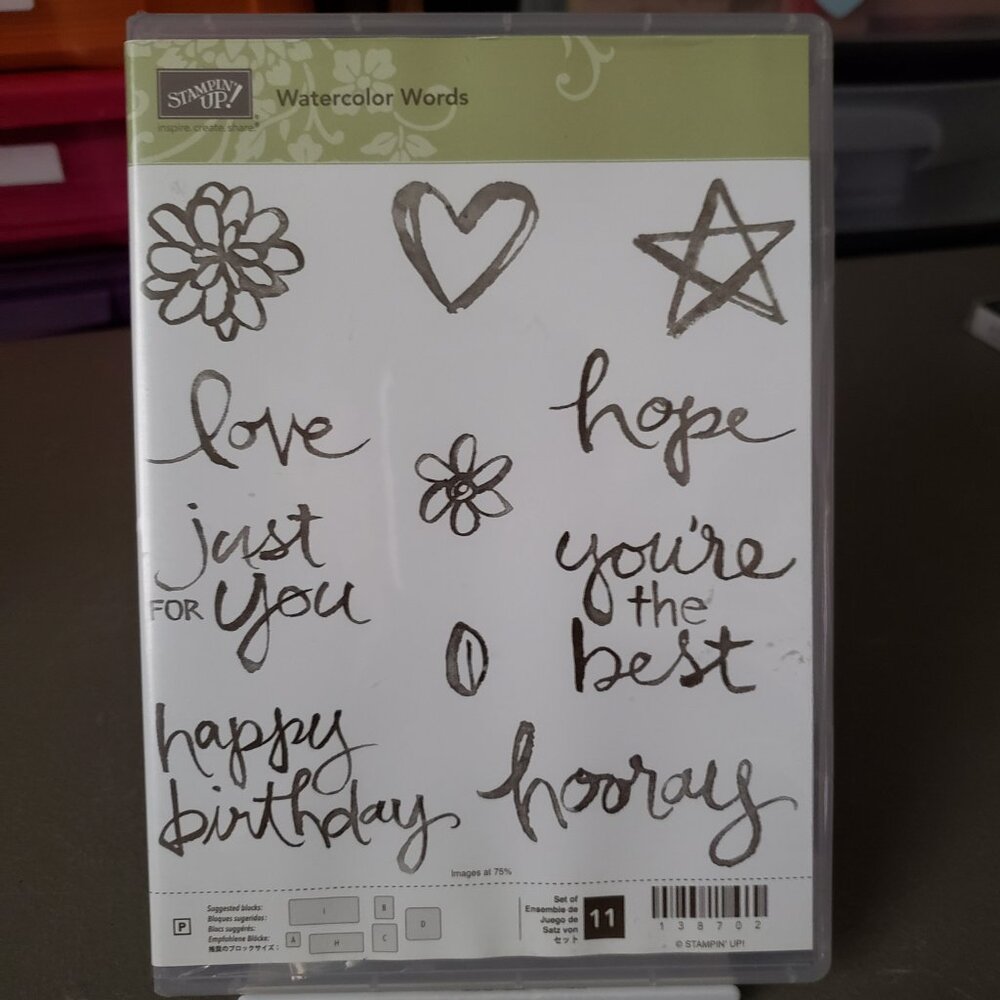 STAMPIN' UP!
inspire. create. share.
Watercolor Words
love
hope
just
FOR you
you're
the
best
happy
birthday
hooray
Images at 75%
P
Suggested blocks:
Bloques sugeridos:
Blocs suggérés:
Empfohlene Blöcke:
推奨のブロックサイズ:
I
B
D
A
H
C
Set of
Ensemble de
Juego de
Satz von
セット
11
138702
© STAMPIN' UP!